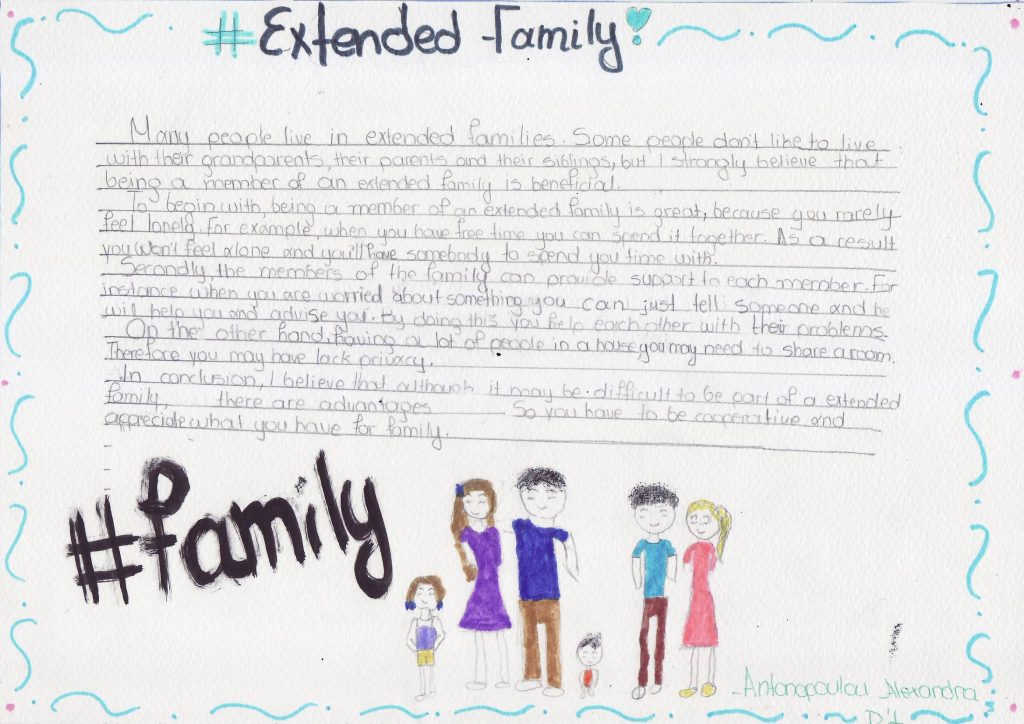 #Extended Family!
Many people live in extended families. Some people don't like to live
with their grandparents, their parents and their siblings, but I strongly believe that
being a member of an extended family is beneficial.
To begin with, being a member of an extended family is great, because you rarely
feel lonely. For example, when you have free time you can spend it together. As a result
you won't feel alone and you'll have somebody to spend you time with.
Secondly, the members of the family can provide support to each member. For
instance when you are worried about something you can just tell someone and he
will help you and advise you. By doing this you help each other with their problems.
On the other hand, having a lot of people in a house, you may need to share a room.
Therefore you may have lack privacy.
In conclusion, I believe that although it may be difficult to be part of a extended
family, there are advantages So you have to be cooperative and
appreciate what you have for family.
#family
-Antonopoulou Alexandra
D'1